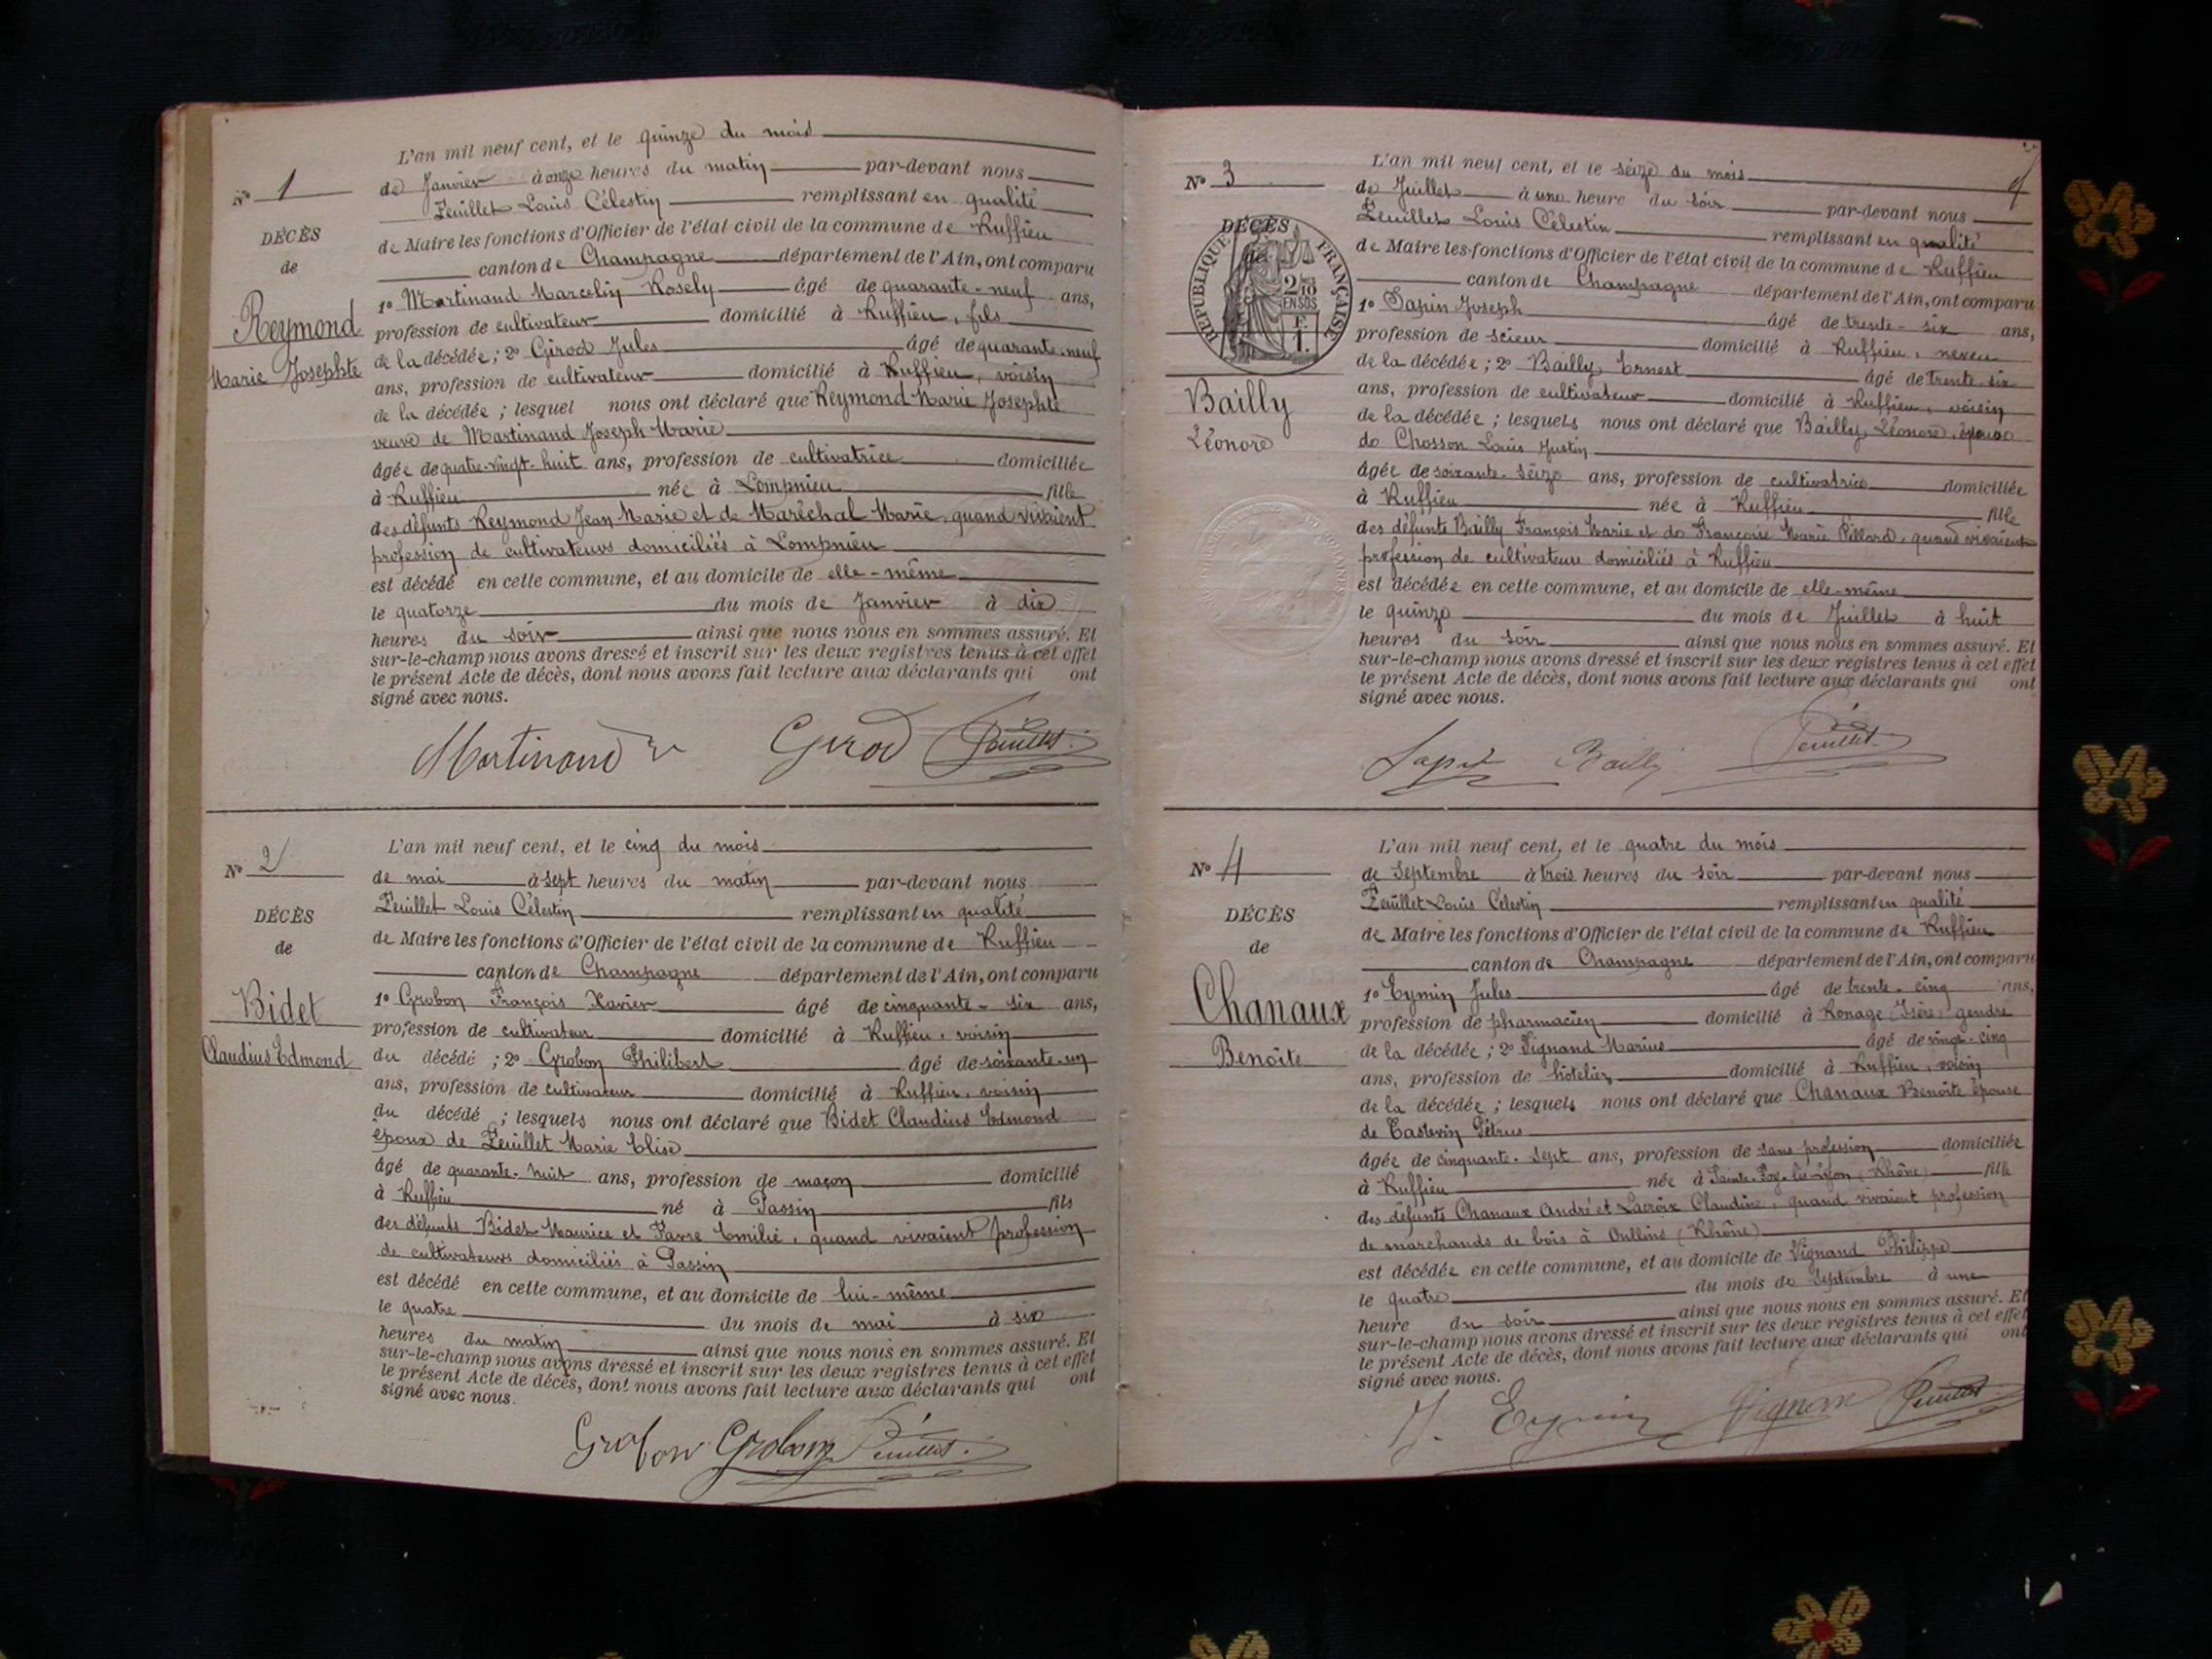 L'an mil neuf cent, et le quinze du mois
N° 1
de Janvier à onze heures du matin par-devant nous
Feuillet Louis Célestin remplissant en qualité
DÉCÈS
de Maire les fonctions d'Officier de l'état civil de la commune de Ruffieu
de
canton de Champagne département de l'Ain, ont comparu
1° Martinand Marcelin Rosely âgé de quarante-neuf ans,
Reymond
profession de cultivateur domicilié à Ruffieu, fils
Marie Josephte
de la décédée; 2° Girod Jules âgé de quarante-neuf
ans, profession de cultivateur domicilié à Ruffieu, voisin
de la décédée; lesquel nous ont déclaré que Reymond Marie Josephte
veuve de Martinand Joseph Marie
âgée de quatre-vingt-huit ans, profession de cultivatrice domiciliée
à Ruffieu née à Lompnieu fille
des défunts Reymond Jean Marie et de Maréchal Marie, quand vivaient
profession de cultivateurs domiciliés à Lompnieu
est décédé en cette commune, et au domicile de elle-même
le quatorze du mois de Janvier à dix
heures du soir ainsi que nous nous en sommes assuré. Et
sur-le-champ nous avons dressé et inscrit sur les deux registres tenus à cet effet
le présent Acte de décès, dont nous avons fait lecture aux déclarants qui ont
signé avec nous.
Martinand Girod Feuillet
L'an mil neuf cent, et le cinq du mois
N° 2
de mai à sept heures du matin par-devant nous
Feuillet Louis Célestin remplissant en qualité
DÉCÈS
de Maire les fonctions d'Officier de l'état civil de la commune de Ruffieu
de
canton de Champagne département de l'Ain, ont comparu
1° Grobon François Xavier âgé de cinquante-six ans,
Bidet
profession de cultivateur domicilié à Ruffieu, voisin
Claudius Edmond
du décédé; 2° Grobon Philibert âgé de soixante-un
ans, profession de cultivateur domicilié à Ruffieu, voisin
du décédé; lesquels nous ont déclaré que Bidet Claudius Edmond
époux de Feuillet Marie Elise
âgé de quarante-huit ans, profession de maçon domicilié
à Ruffieu né à Passin fils
des défunts Bidet Maurice et Favre Emilie, quand vivaient profession
de cultivateurs domiciliés à Passin
est décédé en cette commune, et au domicile de lui-même
le quatre du mois de mai à six
heures du matin ainsi que nous nous en sommes assuré. Et
sur-le-champ nous avons dressé et inscrit sur les deux registres tenus à cet effet
le présent Acte de décès, dont nous avons fait lecture aux déclarants qui ont
signé avec nous.
Grobon Grobon Feuillet
L'an mil neuf cent, et le seize du mois
N° 3
de Juillet à une heure du soir par-devant nous
Feuillet Louis Célestin remplissant en qualité
DÉCÈS
de
RÉPUBLIQUE FRANÇAISE
2/10 EN SUS
F. 1.
de Maire les fonctions d'Officier de l'état civil de la commune de Ruffieu
canton de Champagne département de l'Ain, ont comparu
1° Sapin Joseph âgé de trente-six ans,
profession de scieur domicilié à Ruffieu, neveu
de la décédée; 2° Bailly Ernest âgé de trente-six
Bailly
ans, profession de cultivateur domicilié à Ruffieu, voisin
Léonore
de la décédée; lesquels nous ont déclaré que Bailly Léonore, épouse
de Chosson Louis Justin
âgée de soixante-seize ans, profession de cultivatrice domiciliée
à Ruffieu née à Ruffieu fille
des défunts Bailly François Marie et de Françoise Marie Pillard, quand vivaient
profession de cultivateurs domiciliés à Ruffieu
est décédée en cette commune, et au domicile de elle-même
le quinze du mois de Juillet à huit
heures du soir ainsi que nous nous en sommes assuré. Et
sur-le-champ nous avons dressé et inscrit sur les deux registres tenus à cet effet
le présent Acte de décès, dont nous avons fait lecture aux déclarants qui ont
signé avec nous.
Sapin Bailly Feuillet
L'an mil neuf cent, et le quatre du mois
N° 4
de Septembre à trois heures du soir par-devant nous
Feuillet Louis Célestin remplissant en qualité
DÉCÈS
de Maire les fonctions d'Officier de l'état civil de la commune de Ruffieu
de
canton de Champagne département de l'Ain, ont comparu
1° Eymin Jules âgé de trente-cinq ans,
Chanaux
profession de pharmacien domicilié à Renage (Isère) gendre
Benoîte
de la décédée; 2° Vignand Marius âgé de vingt-cinq
ans, profession de hôtelier domicilié à Ruffieu, voisin
de la décédée; lesquels nous ont déclaré que Chanaux Benoîte épouse
de Tastevin Pétrus
âgée de cinquante-sept ans, profession de sans profession domiciliée
à Ruffieu née à Sainte-Foy-lès-Lyon (Rhône) fille
des défunts Chanaux André et Lacroix Claudine, quand vivaient profession
de marchands de bois à Oullins (Rhône)
est décédée en cette commune, et au domicile de Vignand Philippe
le quatre du mois de Septembre à une
heure du soir ainsi que nous nous en sommes assuré. Et
sur-le-champ nous avons dressé et inscrit sur les deux registres tenus à cet effet
le présent Acte de décès, dont nous avons fait lecture aux déclarants qui ont
signé avec nous.
J. Eymin Vignand Feuillet